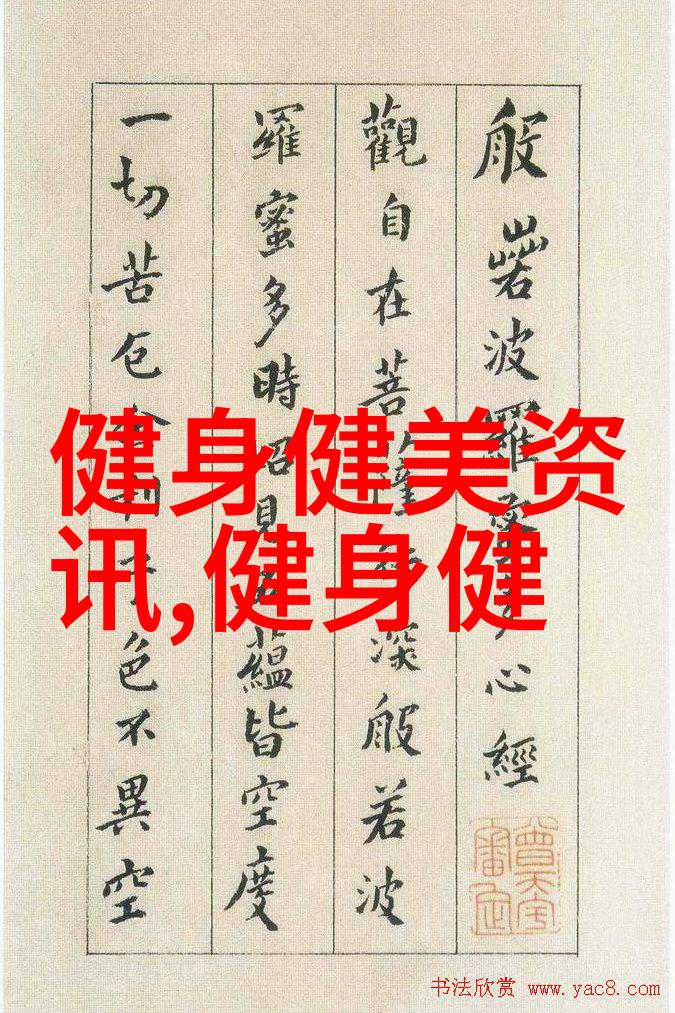 般若波羅蜜多心經
觀自在菩薩行深般若波
羅蜜多時照見五蘊皆空度
一切苦厄舍利子色不異空
健身健美资
讯,健身健
书法欣赏 www.yac8.com